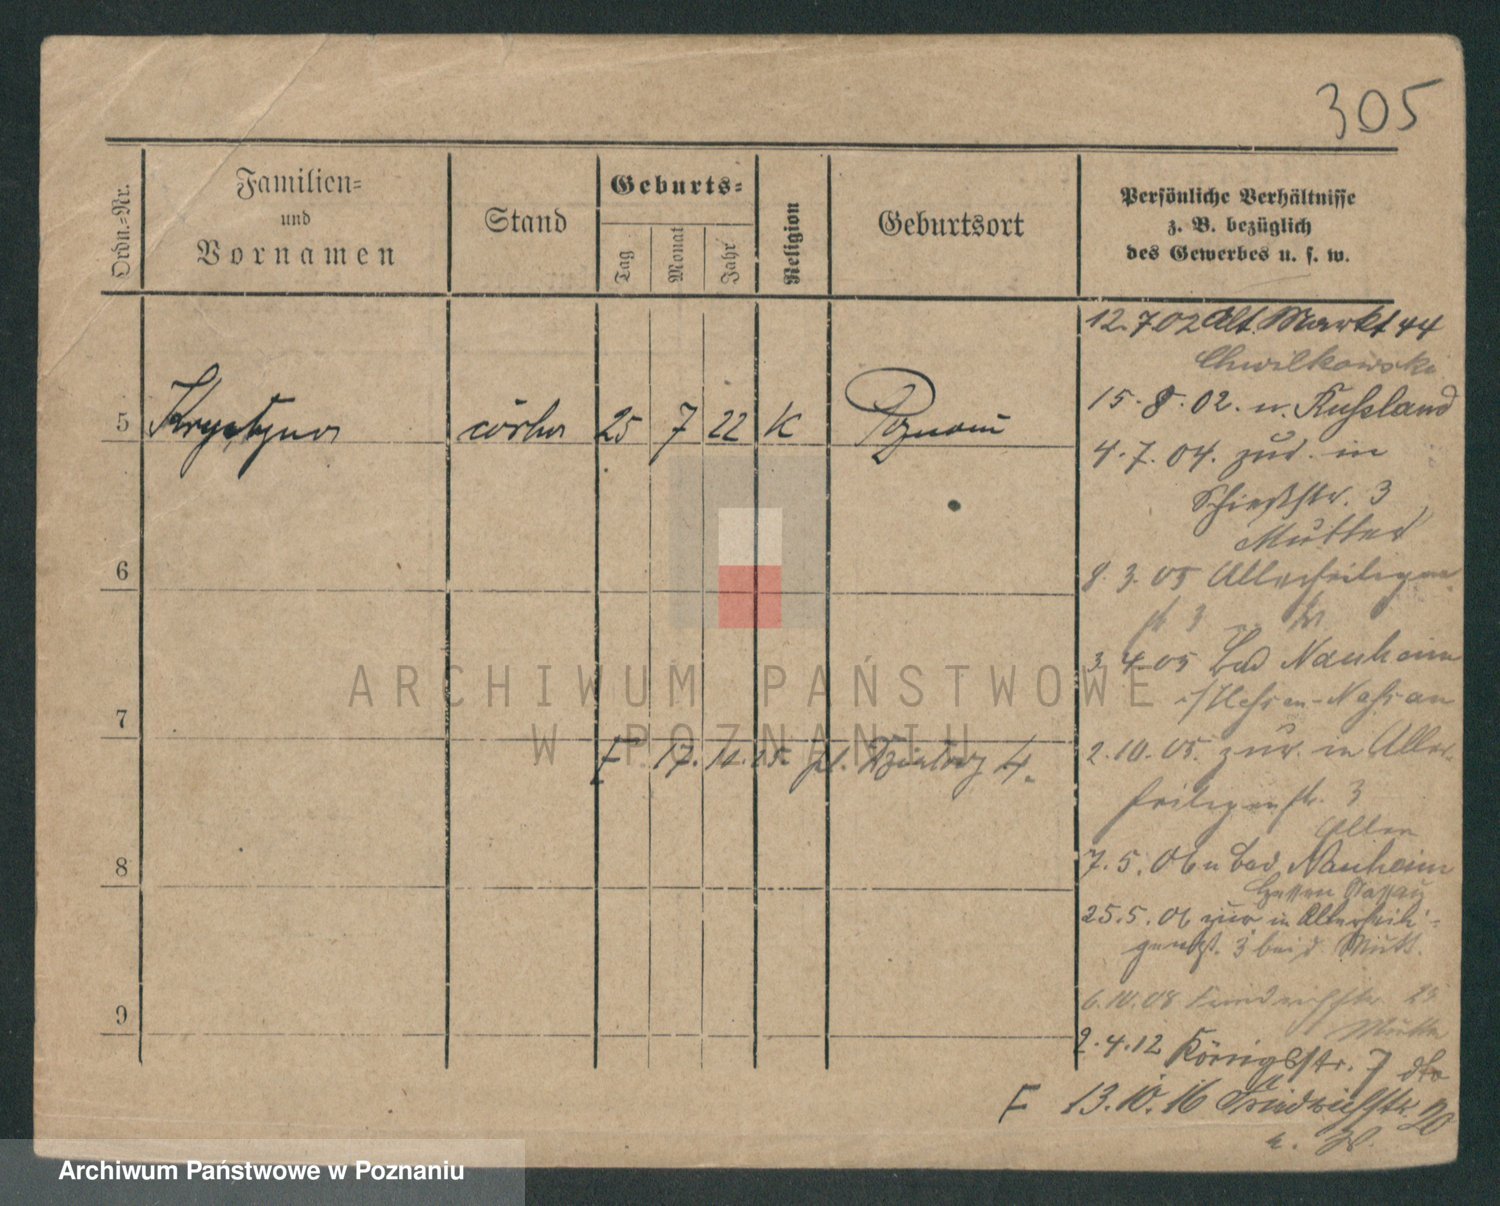 305
Ordn.-Nr.
Familien-
und
Vornamen
Stand
Geburts-
Tag
Monat
Jahr
Religion
Geburtsort
Persönliche Verhältnisse
z. B. bezüglich
des Gewerbes u. s. w.
5 Krystyna córka 25 7 22 K Poznań
6
7
F. 17. 11. 25. pl. Działowy 4.
8
9
12.7.02 Alt. Markt 44
Chwilkowski
15.8.02. n. Russland
4.7.04. zur. in
Schießstr. 3
Mutter
8.3.05 Allerheiligen
str 3
3.4.05 Bad Nauheim
i/Hessen-Nassau
2.10.05. zur. in Aller-
heiligenstr. 3
7.5.06 n Bad Nauheim
Hessen Nassau
25.5.06 zur in Allerheili-
genstr. 3 bei d. Mutt.
6.10.08 Friedrichstr. 25
Mutter
2.4.12 Königsstr. 7 dto
F 13.10.16 Friedrichstr. 20
ARCHIWUM PAŃSTWOWE
W POZNANIU
Archiwum Państwowe w Poznaniu